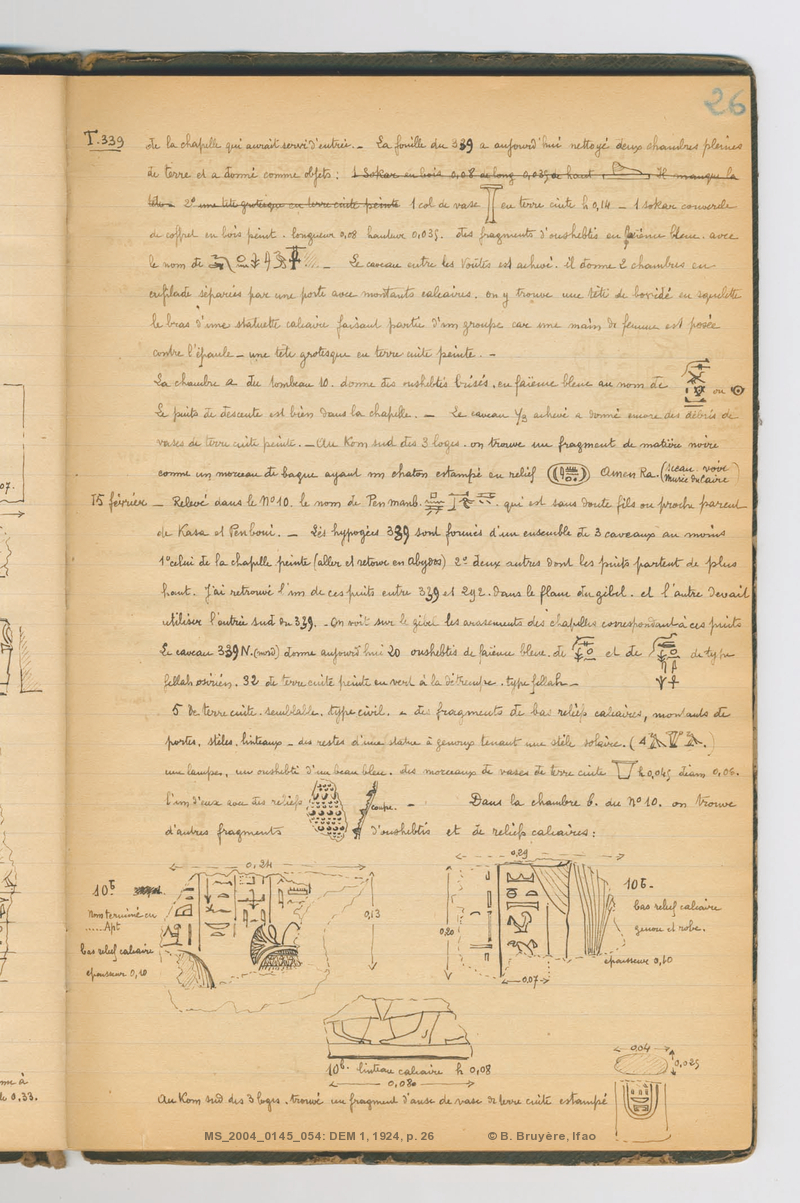 26
T.339 de la chapelle qui aurait servi d'entrée. — La fouille du 339 a aujourd'hui nettoyé deux chambres pleines
de terre et a donné comme objets : 1 Sokar en bois 0,08 de long 0,035 de haut, Il manque la
tête — 2° une tête grotesque en terre cuite peinte 1 col de vase en terre cuite h 0,14 — 1 sokar couvercle
de coffret en bois peint. longueur 0,08 hauteur 0,035. des fragments d'oushebtis en faïence bleue. avec
le nom de — Le caveau entre les voûtes est achevé. il donne 2 chambres en
enfilade séparées par une porte avec montants calcaires. on y trouve une tête de bovidé en squelette
le bras d'une statuette calcaire faisant partie d'un groupe car une main de femme est posée
contre l'épaule — une tête grotesque en terre cuite peinte. —
La chambre a du tombeau 10. donne des oushebtis brisés. en faïence bleue au nom de ou
Le puits de descente est bien dans la chapelle. — Le caveau achevé a donné encore des débris de
vases de terre cuite peinte. — Au Kom sud des 3 loges. on trouve un fragment de matière noire
comme un morceau de bague ayant un chaton estampé en relief Amen Ra. (sceau voir
Musée du Caire)
15 février — Relevé dans le N° 10. le nom de Penmanb. qui est sans doute fils ou proche parent
de Kasa et Penboui. — Les hypogées 339 sont formés d'un ensemble de 3 caveaux au moins
1° celui de la chapelle peinte (aller et retour en Abydos) 2° deux autres dont les puits partent de plus
haut. J'ai retrouvé l'un de ces puits entre 339 et 292. dans le flanc du gébel. et l'autre devait
utiliser l'entrée sud du 339. — On voit sur le gébel les arasements des chapelles correspondant à ces puits
Le caveau 339 N. (nord) donne aujourd'hui 20 oushebtis de faïence bleue. de et de de type
fellah osirien. 32 de terre cuite peinte en vert à la détrempe. type fellah —
5 de terre cuite. semblable. type civil. — des fragments de bas reliefs calcaires, montants de
portes. stèles. linteaux — des restes d'une statue à genoux tenant une stèle solaire. (4 )
une lampe. un oushebti d'un beau bleu. des morceaux de vases de terre cuite h 0,045 diam 0,06.
l'un d'eux avec des reliefs coupe. — Dans la chambre b. du N° 10. on trouve
d'autres fragments d'oushebtis et de reliefs calcaires :
0,24
0,29
10 b
nom terminé en
.....Apt
bas relief calcaire
épaisseur 0,10
0,13
0,20
0,07
10 b —
bas relief calcaire
genou et robe.
épaisseur 0,10
10 b. linteau calcaire h 0,08
0,04
0,025
Au Kom sud des 3 loges. trouvé un fragment d'anse de vase de terre cuite estampé
07.
0.33.
MS_2004_0145_054: DEM 1, 1924, p. 26 © B. Bruyère, Ifao